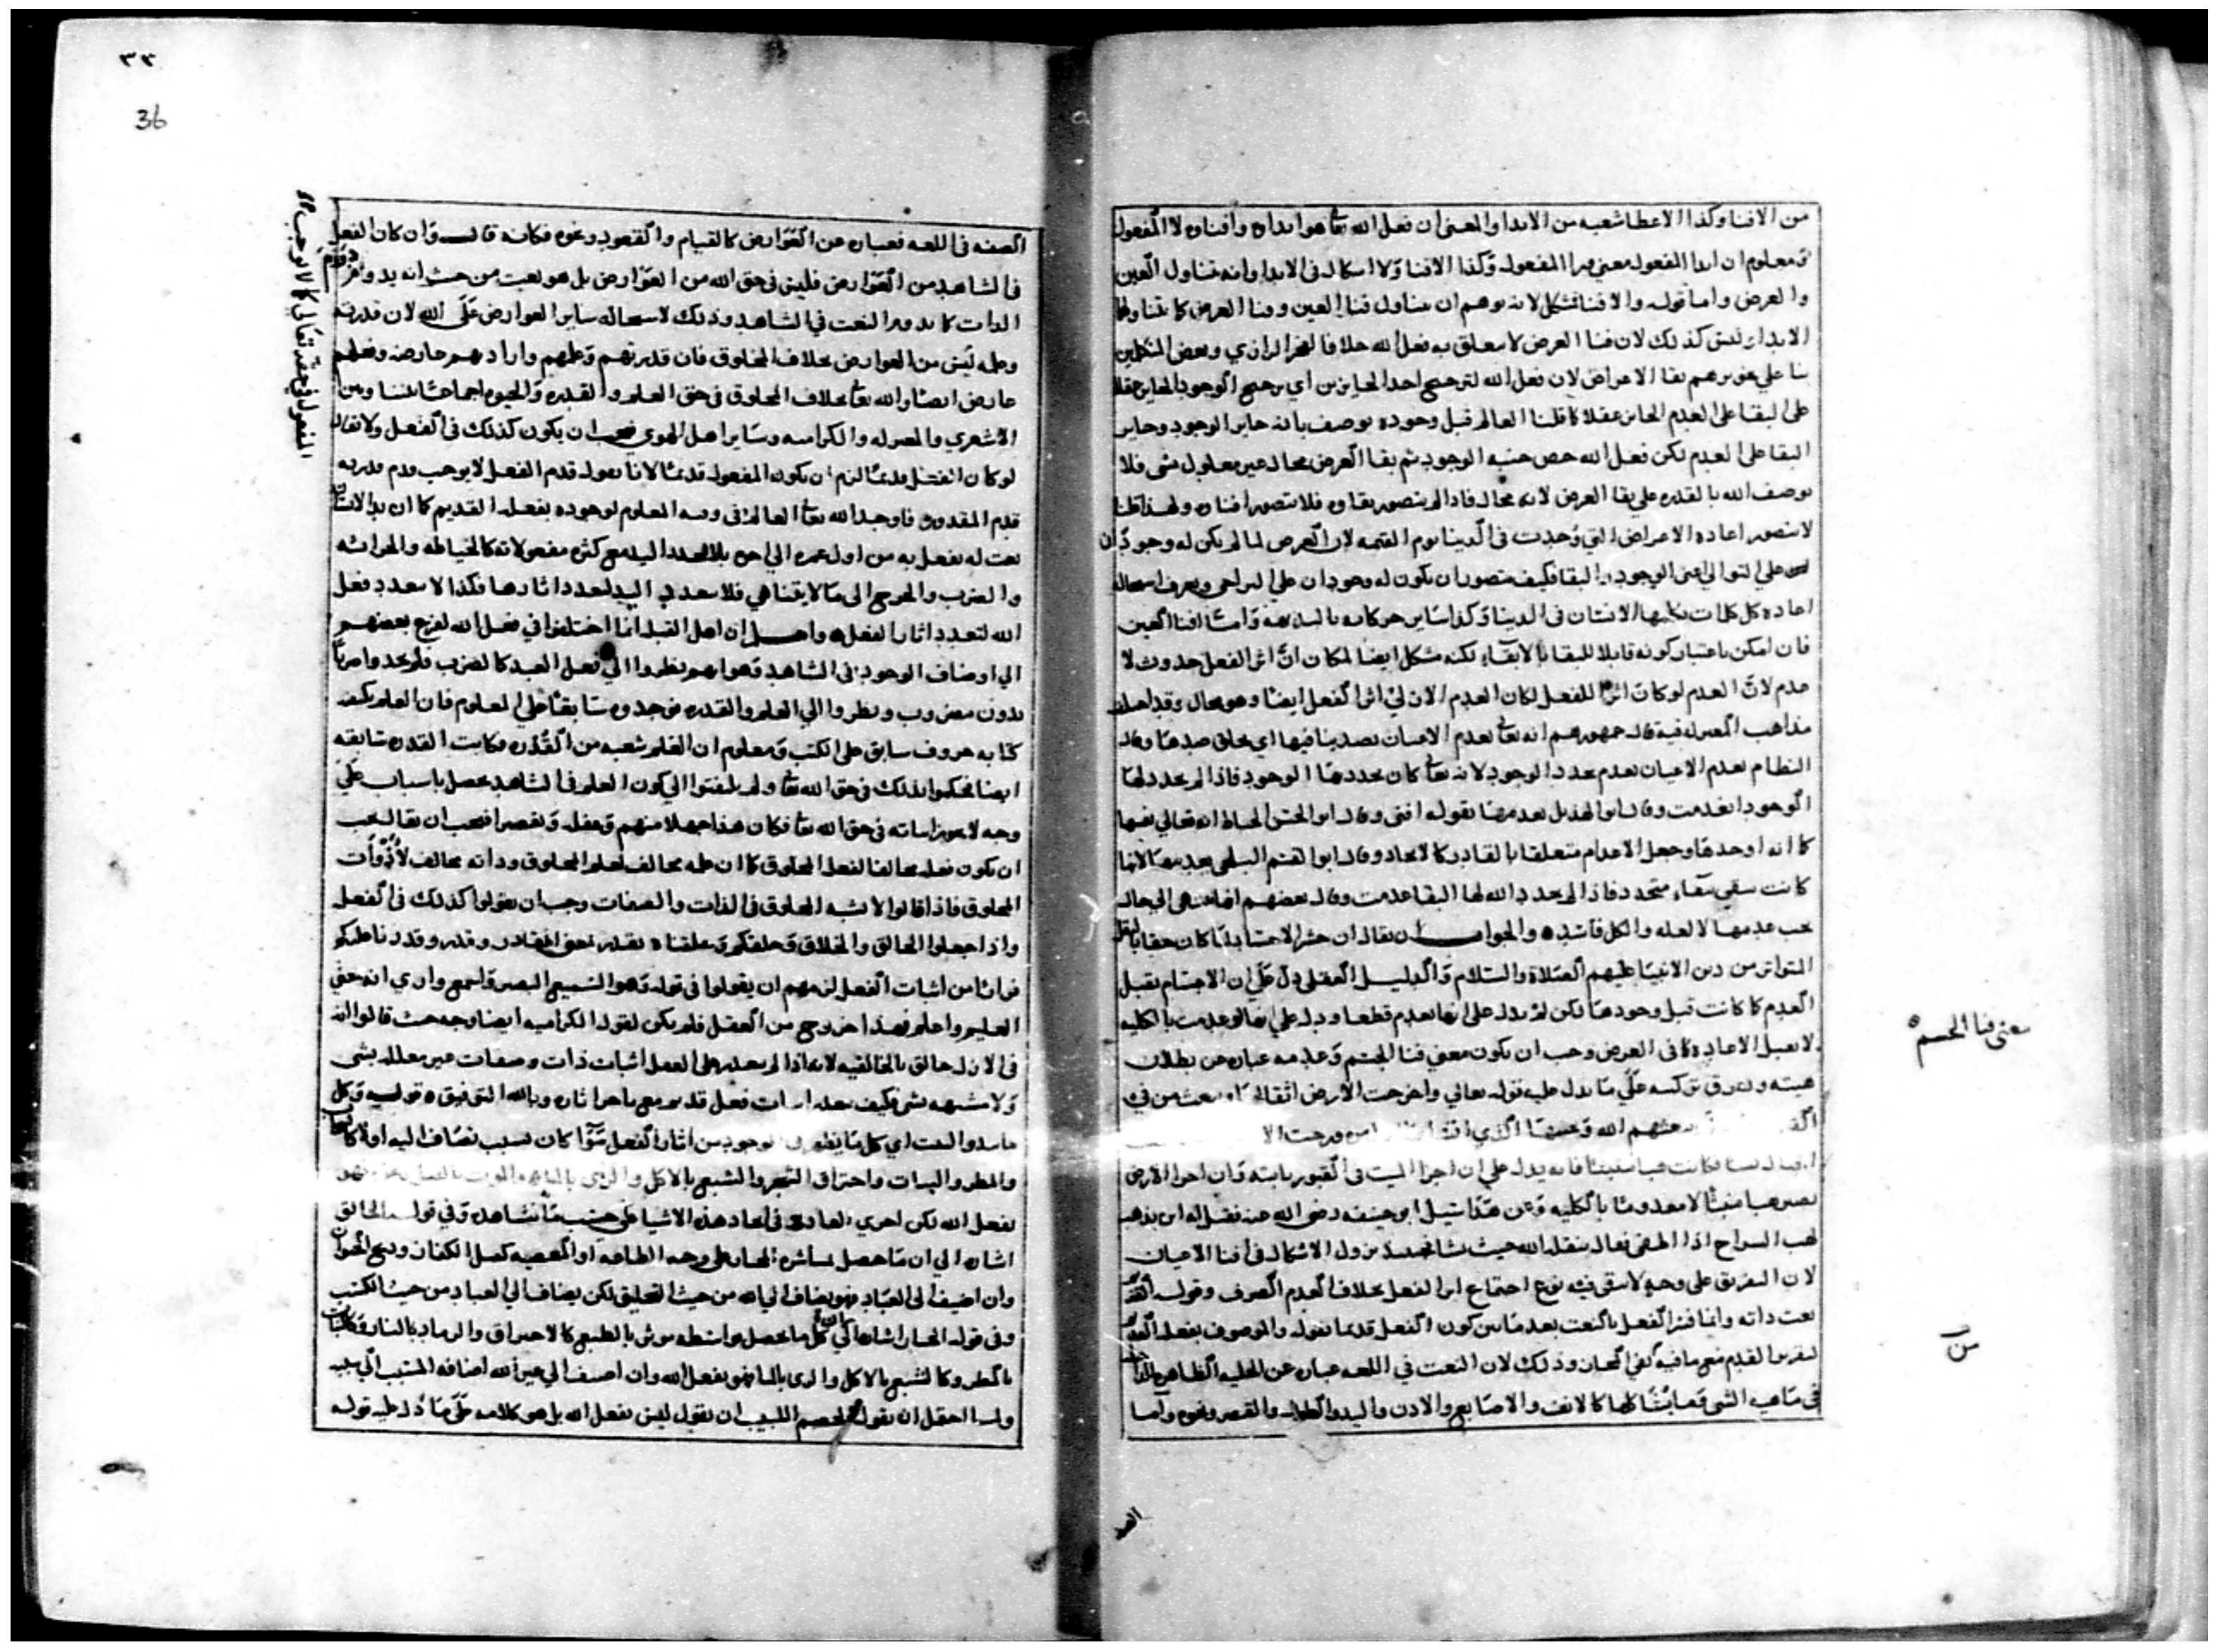 من الافنا وكذا الاعطا شعبه من الابدا والمعنى ان فعل الله تعا هو ابداه وافناه لا المفعول
ومعلوم ان ابدا المفعول معنى ورا المفعول وكذا الافنا ولا اشكال فى الابدا وانه تناول العين
والعرض واما قوله والافنا فمشكل لانه يوهم ان يتناول فنا العين وفنا العرض كما يتناولهما
الابدا وليس كذلك لان فنا العرض لا يتعلق به فعل الله خلافا للفخر الرازي وبعض المتكلمين
بنا علي تجويزهم بقا الاعراض لان فعل الله لترجيح احد الجايزين اي ترجيح الوجود الجايز عقلا
على البقا على العدم الجايز عقلا كما قلنا العالم قبل وجوده يوصف بانه جايز الوجود وجايز
البقا على العدم لكن فعل الله خص جنبه الوجود ثم بقا العرض محال غير معلول بشى فلا
يوصف الله بالقدره علي بقا العرض لانه محال فاذا لم يتصور بقاوه فلا يتصور افناوه ولهذا قلنا
لا يتصور اعاده الاعراض التي وُجدت فى الدينا يوم القيمه لان العرض لما لم يكن له وجودان
على التوالي اعنى الوجود والبقا فكيف يتصور ان يكون له وجودان على التراخى ويعرف استحالة
اعاده كل كلمات تكلمها الانسان فى الدينا وكذا ساير حركاته بالبديهه واما افنا العين
فان امكن باعتبار كونه قابلا للبقا بالابقاء لكنه مشكل ايضا لمكان ان اثر الفعل حدوث لا
عدم لان العدم لو كان اثرا للفعل لكان العدم الازلي اثر الفعل ايضا وهو محال وقد اختلف
مذاهب المعتزله فيه قال جمهورهم انه تعا يعدم الاعيان بضد ينافيها اي يخلق ضدها وقال
النظام يعدم الاعيان بعدم تجدد الوجود لانه تعا كان يجددها الوجود فاذا لم يجدد لها
الوجود انعدمت وقال ابو الهذيل يعدمها بقوله افنى وقال ابو الحسن الخياط انه تعالي يفنيها
كما انه اوجدها وجعل الاعدام متعلقا بالقادر كالايجاد وقال ابو القسم البلخى يعدمها لانها
كانت تبقى ببقاء متجدد فاذا لم يجدد الله لها البقا عدمت وقال بعضهم
يجب عدمها لا لعله والكل فاسد ٥ والجواب ان يقال ان حشر الاجساد لما كان حقا بالنقل
المتواتر من دين الانبيا عليهم الصلاة والسلام والدليل العقلى دل على ان الاجسام تقبل
العدم كما كانت قبل وجودها لكن لم يدل على انها تعدم قطعا ودل على انها لو عدمت بالكليه
لا تقبل الاعادة كما فى العرض وجب ان يكون معنى فنا الجسم وعدمه عباره عن بطلان
هيته وتفرق تركيبه علي ما يدل عليه قوله تعالي واخرجت الارض اثقالها يبعث من في
القبور يبعثهم الله
فكانت هبا منبثا فانه يدل علي ان اجزا الميت فى القبور ثابته وان اجزا الارض
تصير هبا منبثا لا معدومتا بالكليه وعن هذا سيل ابو حنيفه رضى الله عنه فقيل له اين يذهب
لهب السراج اذا انطفى فقال ينقله الله حيث يشا فحينيذ يزول الاشكال فى افنا الاعيان
لان التفريق على وجهٍ لا يبقى فيه نوع اجتماع اثر الفعل بخلاف العدم الصرف وقوله
نعت ذاته وانما فسر الفعل بالنعت بعد ما بين كون الفعل قديما بقوله والموصوف بفعله القديم
لتقرير القدم مع ما فيه نفي المجاز وذلك لان النعت في اللغه عباره عن الحليه الظاهره الداخله
فى ماهيه الشى وما يشاكلها كالانف والاصابع والاذن واليد والطول والقصر ونحوه واما
معنى فنا الجسم ٥
الصفه
٣٣
36
الصفه فى اللغه فعباره عن العوارض كالقيام والقعود ونحوه فكانه قال وان كان الفعل
فى الشاهد من العوارض فليس فى حق الله من العوارض بل هو نعت من حيث انه يدوم
الذات كما يدوم النعت في الشاهد وذلك لاستحاله ساير العوارض علي الله لان قدرته
وعلمه ليس من العوارض بخلاف المخلوق فان قدرتهم وعلمهم وارادتهم عارضه وفعلهم
عارض ايضا والله تعا بخلاف المخلوق فى حق العلم والقدره والحيوه اجماعا بيننا وبين
الاشعري والمعتزله والكراميه وساير اهل الهوي فيجب ان يكون كذلك فى الفعل ولا يقال
لو كان الفعل قديما لزم ان يكون المفعول قديما لانا نقول قدم الفعل لا يوجب قدم
قدم المقدور فاوجد الله تعا العالم فى وقته المعلوم لوجوده بفعله القديم كما ان يد الانسان
نعت له يفعل به من اول عمره الي اخره بلا تجدد اليد مع كثره مفعولاته كالخياطه والحراثه
والضرب والجرح الى ما لا يتناهي فلا يتعدد اليد لتعدد اثارها فكذا لا يتعدد فعل
الله لتعدد اثار الفعل ٥ واعلم ان اهل القبله انما اختلفوا في فعل الله لفزع بعضهم
الي اوصاف الوجود فى الشاهد وهو انهم نظروا الي فعل العبد كالضرب فلم يجدوا ضربا
بدون مضروب ونظروا الي العلم والقدره فوجدوه سابقا على المعلوم فان العلم بكيفه
كتابه حروف سابق على الكتب ومعلوم ان العلم شعبه من القدره فكانت القدره سابقه
ايضا فحكموا بذلك فى حق الله تعا ولم يلتفتوا الي كون العلم فى الشاهد حصل باسباب علي
وجه لا يجوز اثباته فى حق الله تعا فكان هذا جهلا منهم وغفله وتقصيرا فيجب ان يقال يجب
ان يكون فعله مخالفا لفعل المخلوق كما ان علمه مخالف لعلم المخلوق وذاته مخالف لذوات
المخلوق فاذا قالوا لا يشبه المخلوق فى الذات والصفات وجب ان يقولوا كذلك فى الفعل
واذا جعلوا الخالق والخلاق وخلقكم وخلقناه بقدر بمعنى القادر وقدره وقدرنا عليكم
فرارا من اثبات الفعل لزمهم ان يقولوا فى قوله وهو السميع البصير واسمع واري انه خفي
العليم واعلم فهذا خروج من العقل فلم يكن لقول الكراميه ايضا وجه حيث قالوا انه
فى الازل خالق بالخالقيه لانه اذا لم يتعذر على العقل اثبات ذات وصفات غير معلله بشى
ولا مشبهه بشى فكيف يتعذر اثبات فعل قديم مع تاخر اثاره وبالله التوفيق ٥ قوله وكل
ما يبدوا النعت اي كل ما يظهر فى الوجود من اثار الفعل سوا كان لسبب تضاف اليه اولا كالسحاب
والمطر والنبات واحتراق الشجر والشبع بالاكل والري بالماء
بفعل الله لكن اجري العاده فى ايجاد هذه الاشيا علي حسب ما نشاهد وفي قوله الخالق
اشاره الي ان ما حصل بمباشره المختار على وجه الطاعه او المعصيه كقتل الكفار وذبح الحيوان
وان اضيف الى العباد فهو يضاف الى الله من حيث التخليق لكن يضاف الي العباد من حيث الكسب
وفى قوله المختار اشاره الي ان كل ما يحصل بواسطه موثر بالطبع كالاحتراق والرماد بالنار وكالنبات
بالمطر وكالشبع بالاكل والري بالما فهو بفعل الله وان اضيف الي غير الله اضافه المسبب الي سببه
ولما احتمل ان يقول الخصم اللبيب ان يقول ليس بفعل الله بل هو كلامه علي ما دل عليه قوله
المفعول في حقه تعالى كما لا يوجب